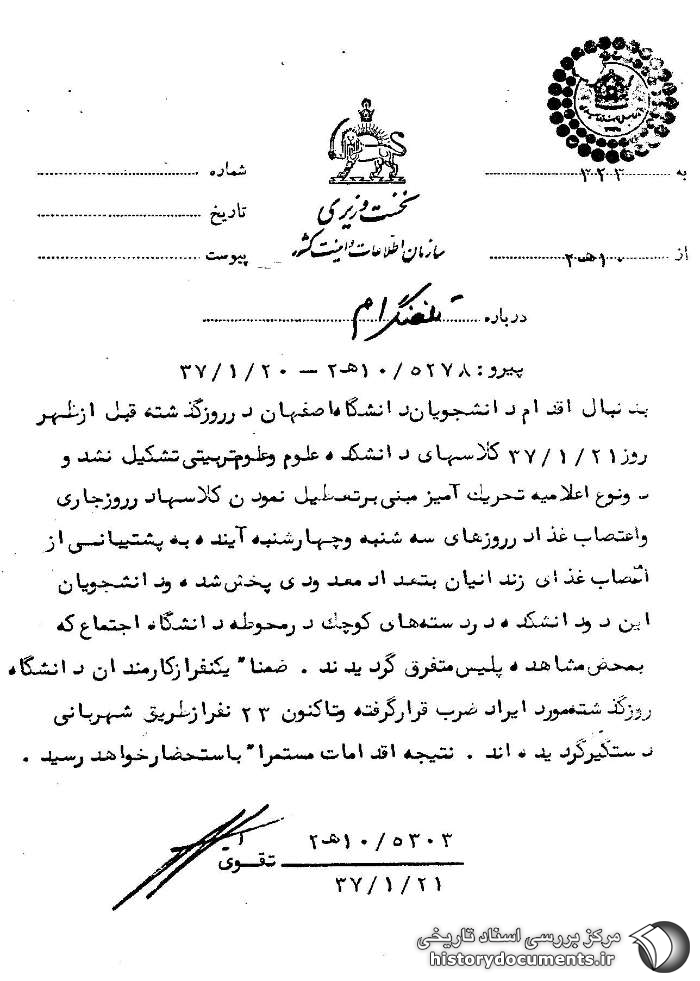 به ۳۲۳
شماره
نخست وزیری
تاریخ
سازمان اطلاعات و امنیت کشور
از ۱۰هـ۲
پیوست
درباره تلفنگرام
پیرو: ۱۰/۵۲۷۸هـ۲ – ۳۷/۱/۲۰
بدنبال اقدام دانشجویان دانشگاه اصفهان در روز گذشته قبل از ظهر
روز ۳۷/۱/۲۱ کلاسهای دانشکده علوم و علوم تربیتی تشکیل نشد و
دو نوع اعلامیه تحریک آمیز مبنی بر تعطیل نمودن کلاسها در روز جاری
و اعتصاب غذا در روزهای سه شنبه و چهارشنبه آینده به پشتیبانی از
اعتصاب غذای زندانیان بتعداد معدودی پخش شده و دانشجویان
این دو دانشکده در دسته‌های کوچک در محوطه دانشگاه اجتماع که
بمحض مشاهده پلیس متفرق گردیدند . ضمناً یکنفر از کارمندان دانشگاه
روز گذشته مورد ایراد ضرب قرار گرفته و تاکنون ۲۳ نفر از طریق شهربانی
دستگیر گردیده اند . نتیجه اقدامات مستمراً باستحضار خواهد رسید .
۱۰/۵۳۰۳هـ۲
تقوی
۳۷/۱/۲۱
مرکز بررسی اسناد تاریخی
historydocuments.ir